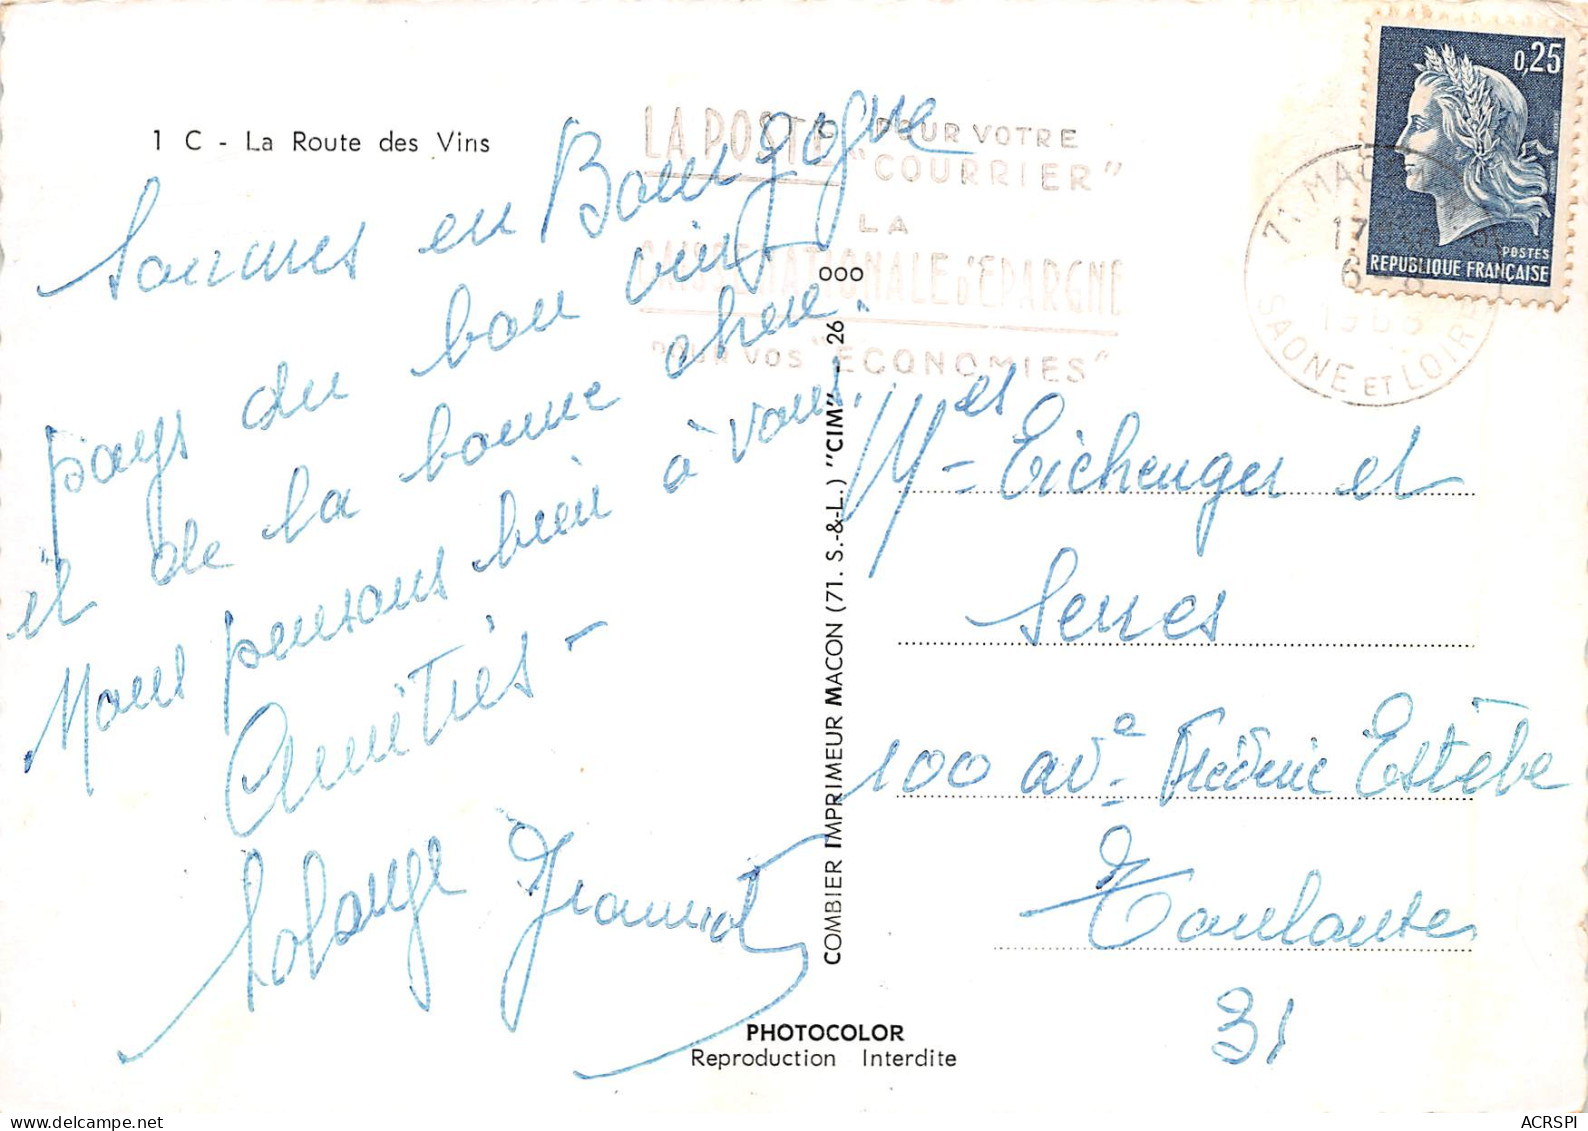 1 C - La Route des Vins
Sommes en Bourgogne
pays du bon vin
et de la bonne chère.
Nous pensons bien à vous.
Amitiés -
Solange Jeannot
LA POSTE POUR VOTRE
"COURRIER"
LA
CAISSE NATIONALE D'EPARGNE
POUR VOS "ECONOMIES"
71 MACON
17
6 - 8
SAONE ET LOIRE
0,25
POSTES
REPUBLIQUE FRANÇAISE
COMBIER IMPRIMEUR MACON (71. S.-&-L.) "CIM" - 26 000
Mes Eichenger et
Serres
100 ave Frédéric Estèbe
Toulouse
31
PHOTOCOLOR
Reproduction Interdite
www.delcampe.net
ACRSPI